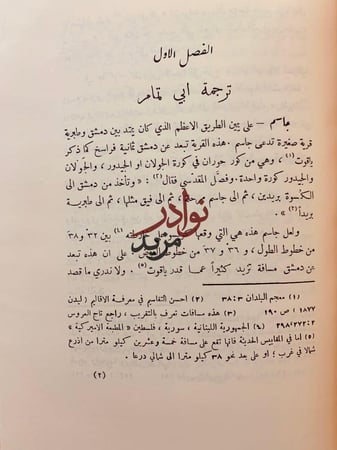 الفصل الاول
ترجمة أبي تمام
جاسم – على يمين الطريق الاعظم الذي كان يمتد بين دمشق وطبرية
قرية صغيرة تدعى جاسم. هذه القرية تبعد عن دمشق ثمانية فراسخ كما ذكر
ياقوت (١)، وهي من كور حوران في كورة الجولان او الجيدور، والجولان
والجيدور كورة واحدة. وفصل المقدسي فقال (٢): « وتأخذ من دمشق الى
الكسوة بريدين، ثم الى جاسم، ثم الى فيق مثلها، ثم الى طبرية
بريداً (٣) ».
نوادر
مزيد
ولعل جاسم هذه هي التي وقعها (٤) بين ٣٢° و ٣٨
من خطوط الطول، و ٣٦ و ٣٧ من خطوط على ان هذه تبعد
عن دمشق مسافة تزيد كثيراً عما قدر ياقوت (٥). ولا ندري ما قصد
(١) معجم البلدان ٣ : ٣٨ (٢) احسن التقاسيم في معرفة الاقاليم (ليدن
١٨٧٧) ص ١٩٠ (٣) هذه مسافات تعرف بالتقريب، راجع تاج العروس
٢ : ٢٧٢، ٢٩٨ (٤) الجمهورية اللبنانية، سورية، فلسطين « المطبعة الاميركية »
(٥) اما في المقاييس الحديثة فانها تقع على مسافة خمسة وعشرين كيلو مترا من اذرع
شمالا في غرب؛ او على بعد نحو ٣٨ كيلو مترا الى شمالي درعا.
(٢)